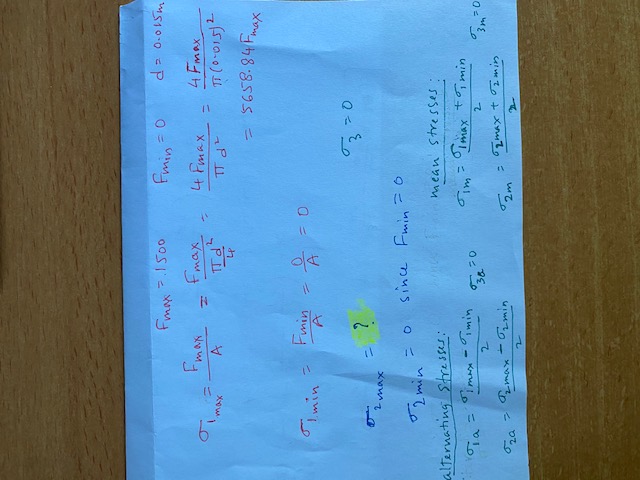 Fmax = .1500 Fmin = 0 d = 0.015m
σ1max = Fmax/A = Fmax/(πd²/4) = 4Fmax/πd² = 4Fmax/π(0.015)²
= 5658.84Fmax
σ1min = Fmin/A = 0/A = 0
σ3 = 0
σ2max = ?
σ2min = 0 since Fmin = 0
alternating stresses: mean stresses:
σ1a = (σ1max - σ1min)/2 σ3a = 0 σ1m = (σ1max + σ1min)/2 σ3m = 0
σ2a = (σ2max - σ2min)/2 σ2m = (σ2max + σ2min)/2